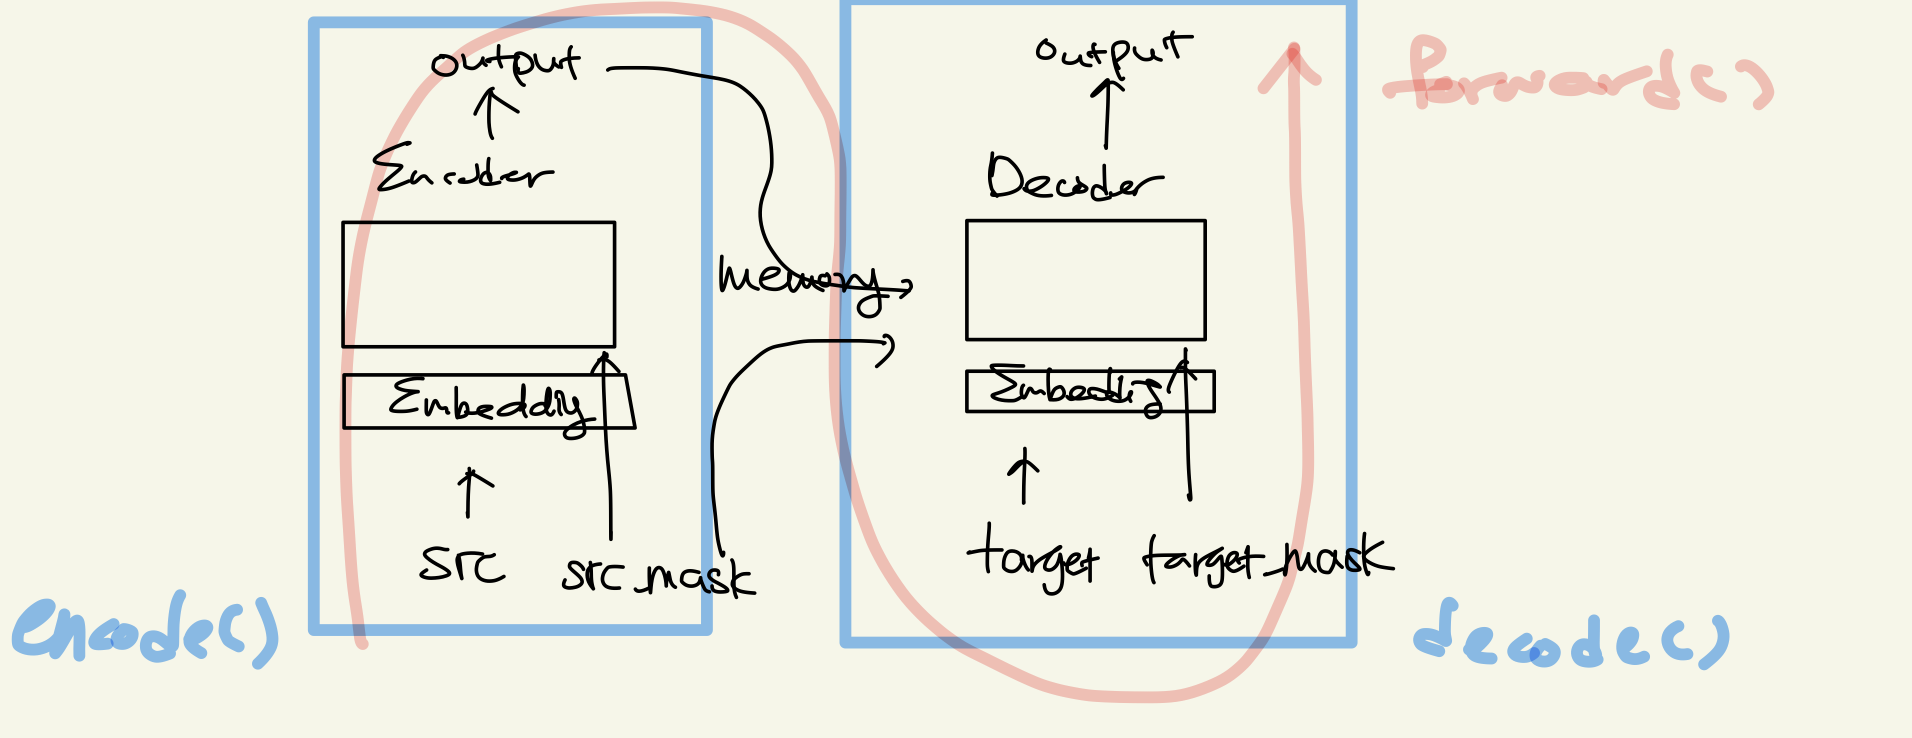 output
Encoder
Embedding
src
src_mask
encode()
memory
output
Decoder
Embedding
target
target_mask
decode()
forward()